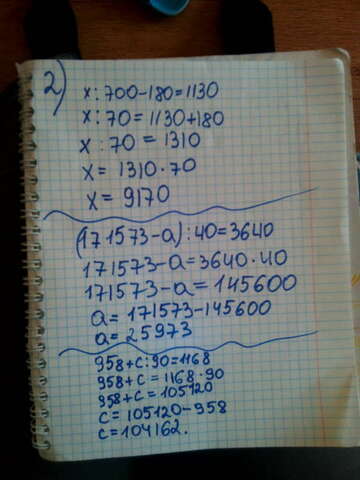 2)
x:700-180=1130
x:70=1130+180
x:70=1310
x=1310·70
x=9170
(171573-a):40=3640
171573-a=3640·40
171573-a=145600
a=171573-145600
a=25973
958+c:90=1168
958+c=1168·90
958+c=105120
c=105120-958
c=104162.